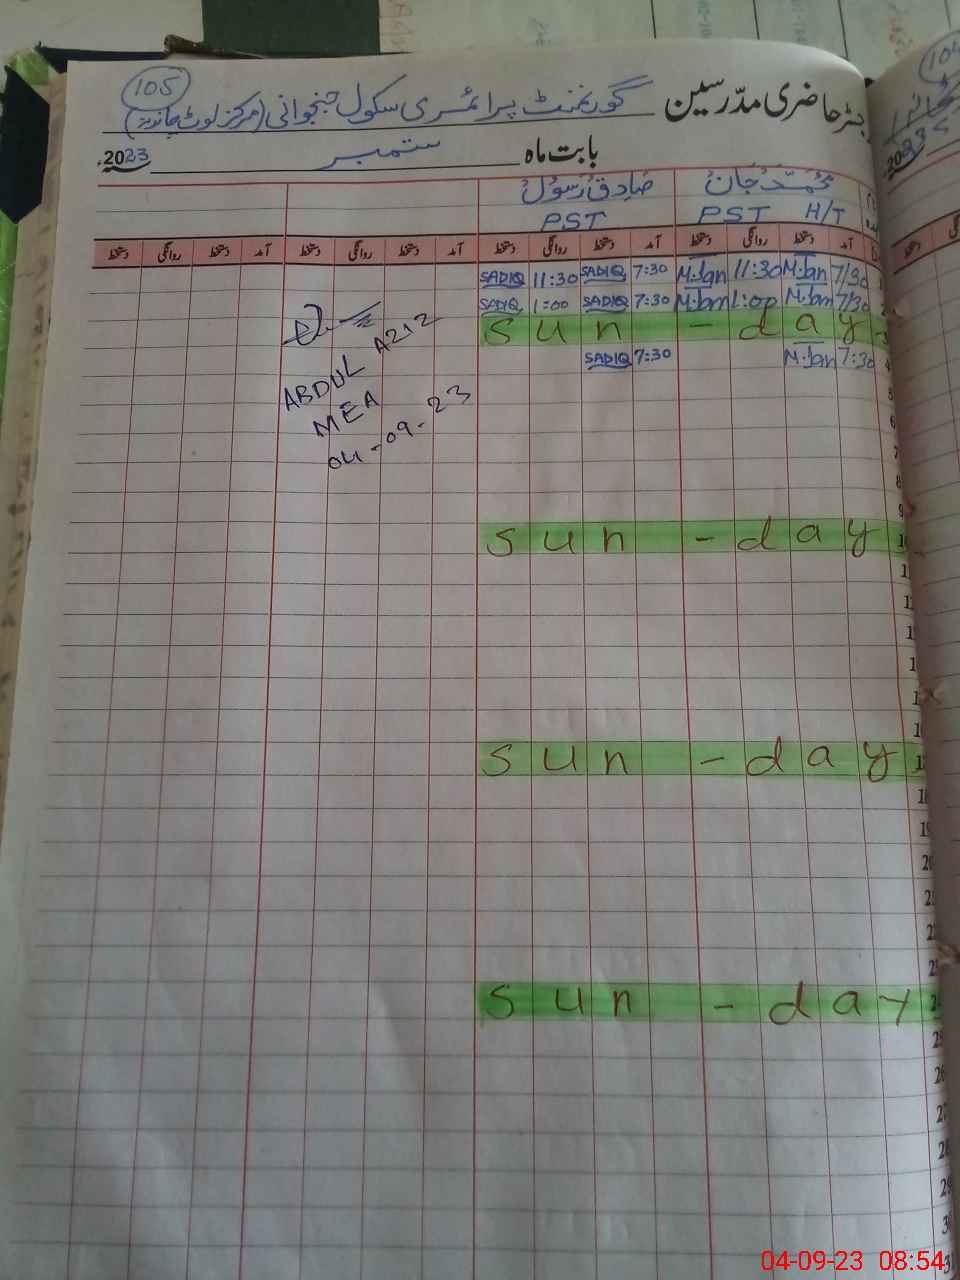 105
رجسٹر حاضری مدرسین گورنمنٹ پرائمری سکول جنجوانی (مرکز لوٹ چاندیہ)
بابت ماہ ستمبر 2023ء
محمد جان صادق رسول
PST H/T PST
آمد دستخط روانگی دستخط آمد دستخط روانگی دستخط آمد دستخط روانگی دستخط آمد دستخط روانگی دستخط
SADIQ 11:30 SADIQ 7:30 M.Jan 11:30 M.Jan 7/30
SADIQ 1:00 SADIQ 7:30 M.Jan 1:00 M.Jan 7/30
sun - day 3
SADIQ 7:30 M.Jan 7:30 4
ABDUL AZIZ
MEA
04-09-23
5
6
7
8
9
sun - day 10
sun - day
18
19
sun - day
26
28
04-09-23 08:54